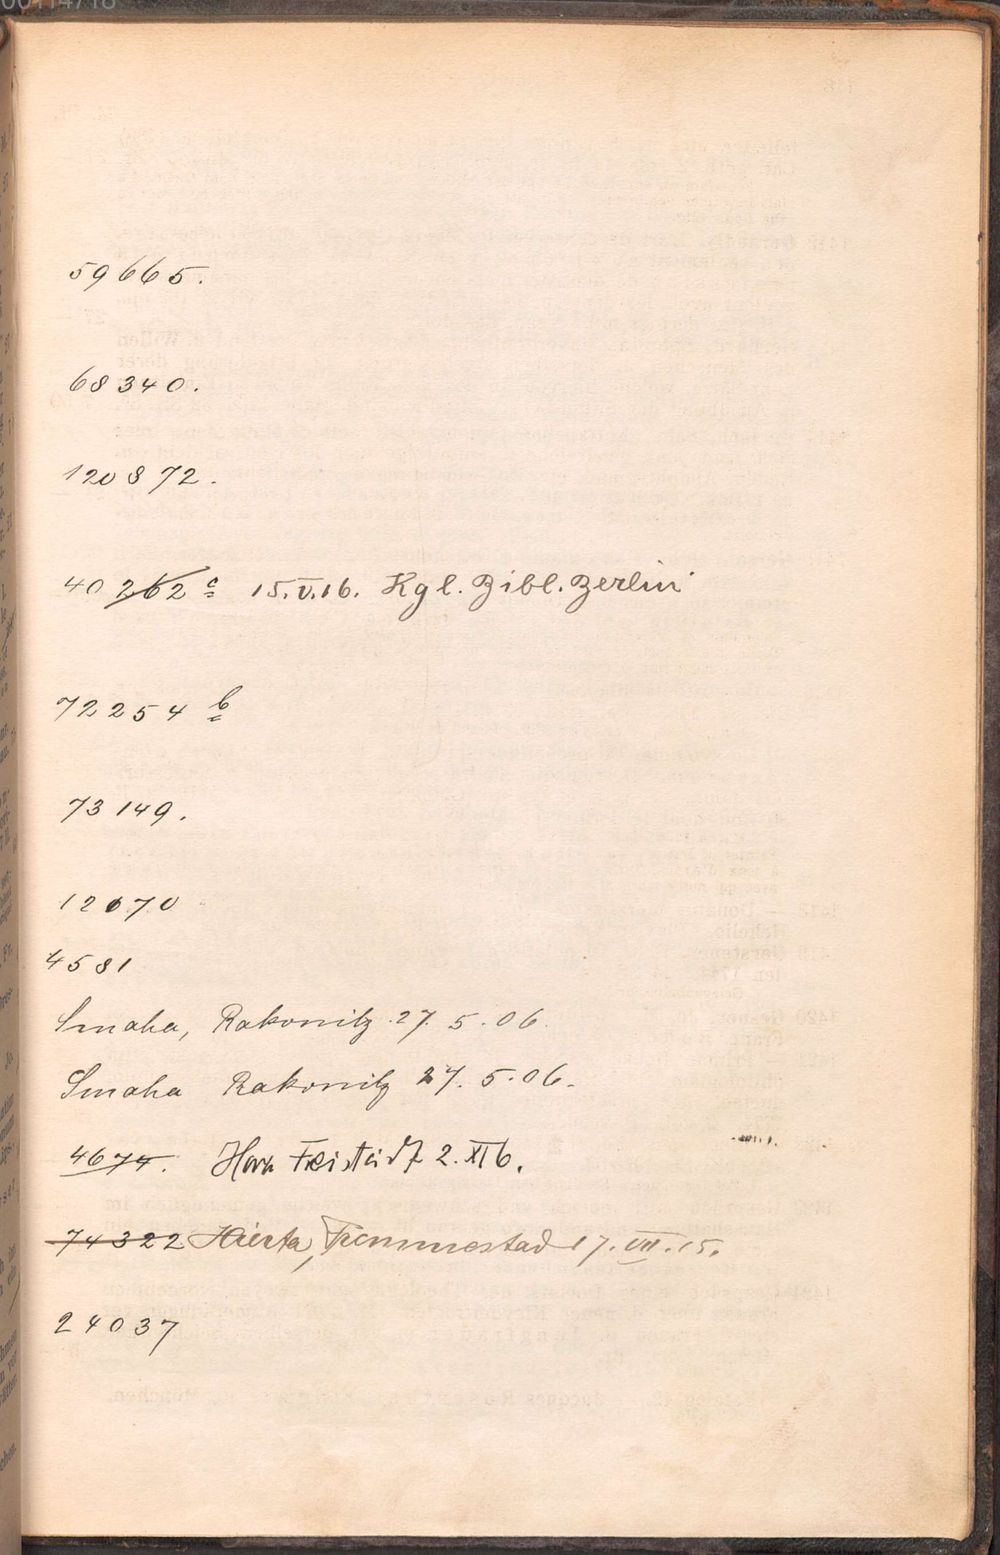 00114718
59665.
68340.
120872.
40262 c 15.V.16. Kgl. Bibl. Berlin
72254 b
73149.
12070
4581
Smaha, Rakonitz 27. 5. 06.
Smaha Rakonitz 27. 5. 06.
4674. Herr 2. XI 6.
74322 Hierta, Frammestad 17. VII. 15.
24037